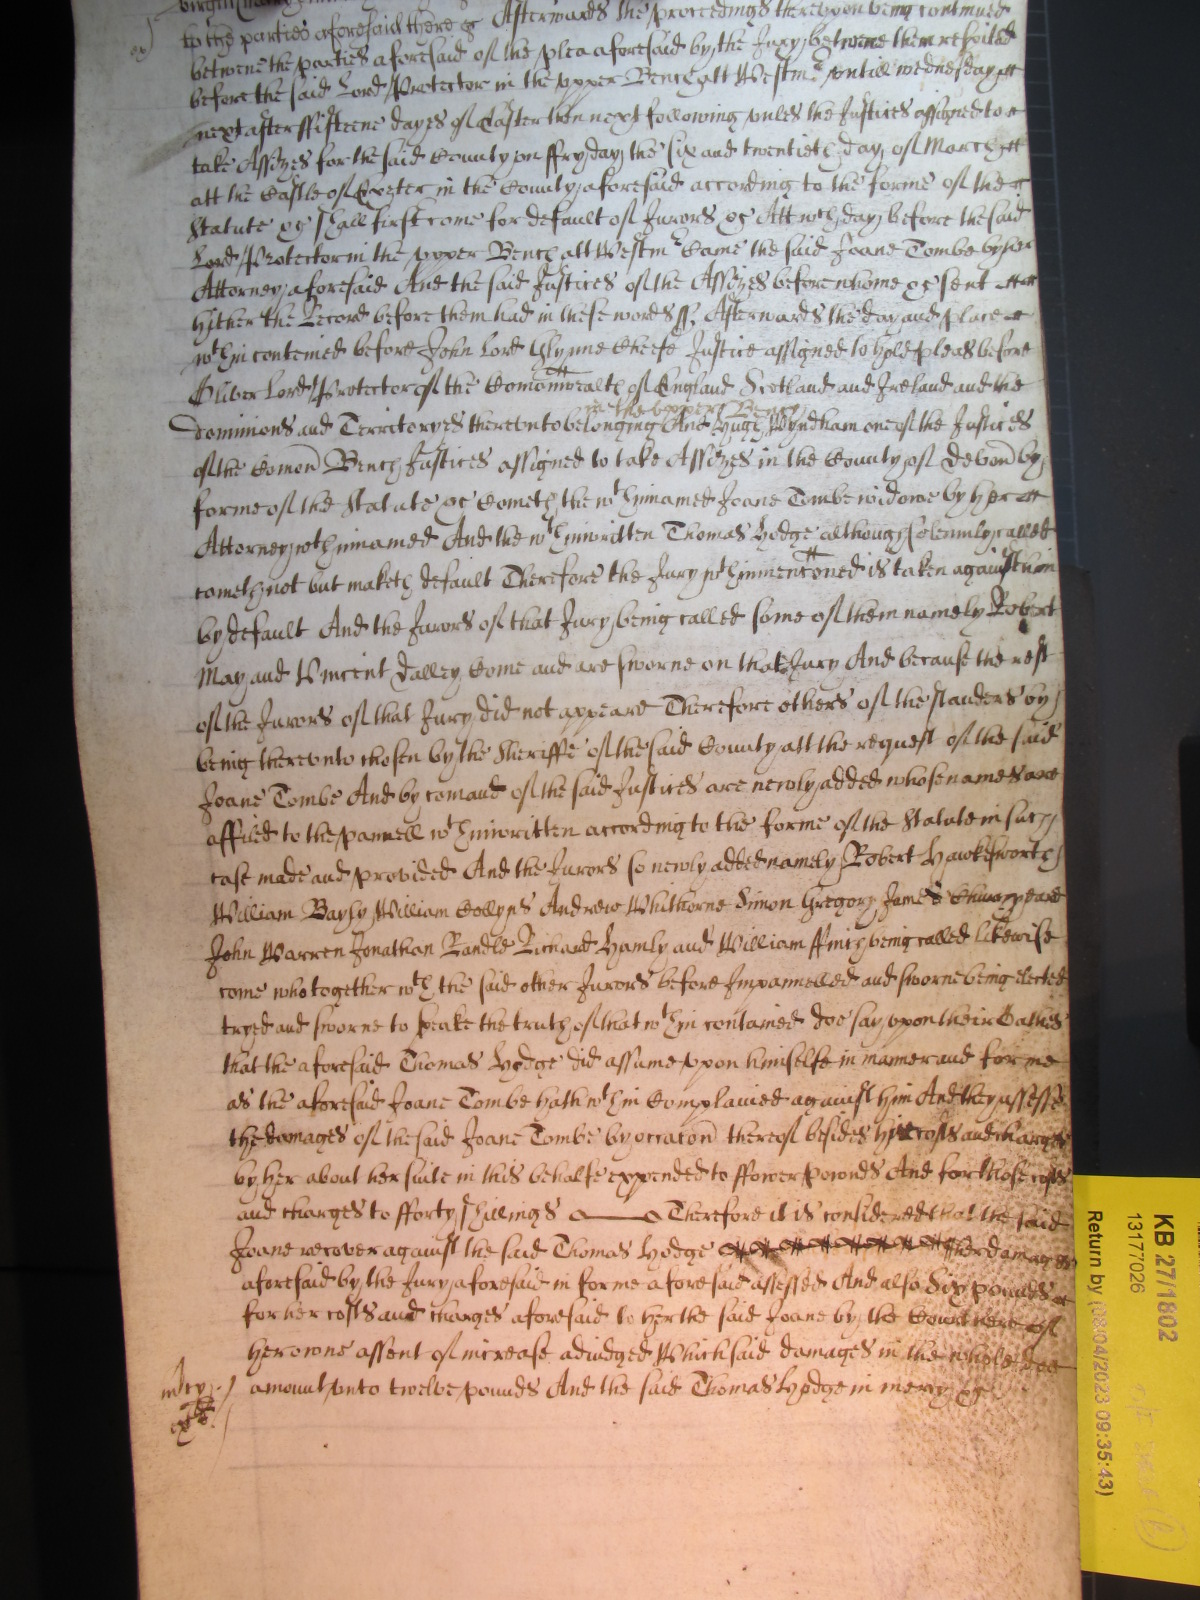 to the parties aforesaid there &c Afterwards the proceedings thereupon being continued
betweene the parties aforesaid of the plea aforesaid by the Jury betweene them respited
before the said Lord Protector in the upper Bench att Westmr untill wednesday
next after ffifteene dayes of Easter then next following unles the Justices assigned to
take Assizes for the said County on ffryday the six and twentieth day of March
att the Castle of Exeter in the County aforesaid according to the forme of the
Statute &c shall first come for default of Jurors &c Att wch day before the said
Lord Protector in the upper Bench att Westmr Came the said Joane Tombe by her
Attorney aforesaid And the said Justices of the Assizes before whome &c sent
hither the Record before them had in these words ss. Afterwards the day and place
wthin conteined before John Lord Glynne Cheefe Justice assigned to hold pleas before
Oliver Lord Protector of the Comonwealth of England Scotland and Ireland and the
in the upper Bench
dominions and Territoryes thereunto belonging And Hugh Wyndham one of the Justices
of the Comon Bench Justices assigned to take Assizes in the County of Devon by
forme of the Statute &c Cometh the wthinnamed Joane Tombe widowe by her
Attorney wthinnamed And the wthinwritten Thomas Hodge although solemnly called
cometh not but maketh default Therefore the Jury wthinmentoned is taken against him
by default And the Jurors of that Jury being called some of them namely Robert
May and Vincent Dalley Come and are sworne on that Jury And because the rest
of the Jurors of that Jury did not appeare Therefore others of the standers by
being thereunto chosen by the Sheriffe of the said County att the request of the said
Joane Tombe And by comand of the said Justices are newly added whose names are
affiled to the pannell wthinwritten according to the forme of the Statute in such
case made and provided And the Jurors so newly added namely Robert Hawkesworth
William Bayly William Collyns Andrew Whithorne Simon Gregory James
John Warren Jonathan Randle Richard Hamly and William ffinch being called likewise
come who together wth the said other Jurors before Impannelled and sworne being elected
tryed and sworne to speake the truth of that wthin contained doe say upon their Oathes
that the aforesaid Thomas Hodge did assume upon himselfe in manner and forme
as the aforesaid Joane Tombe hath wthin Complained against him And they assesse
the damages of the said Joane Tombe by occacon thereof besides her costs and charges
by her about her suite in this behalfe expended to ffower pownds And for those costs
and charges to fforty shillings Therefore it is considered that the said
Joane recover against the said Thomas Hodge her damages
aforesaid by the Jury aforesaid in forme aforesaid assessed And also Six pounds
for her costs and charges aforesaid to her the said Joane by the Court here of
her owne assent of increase adiudged Which said damages in the whole doe
mercy
amount unto twelve pounds And the said Thomas Hodge in mercy &c
KB 27/1802
13177026
Return by (08/04/2023 09:35:43)